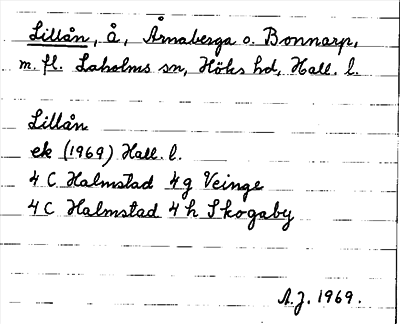 Lillån, å, Årnaberga o. Bonnarp,
m. fl. Laholms sn, Höks hd, Hall. l.
Lillån
ek (1969) Hall. l.
4 C Halmstad 4g Veinge
4 C Halmstad 4h Skogaby
A.J. 1969.